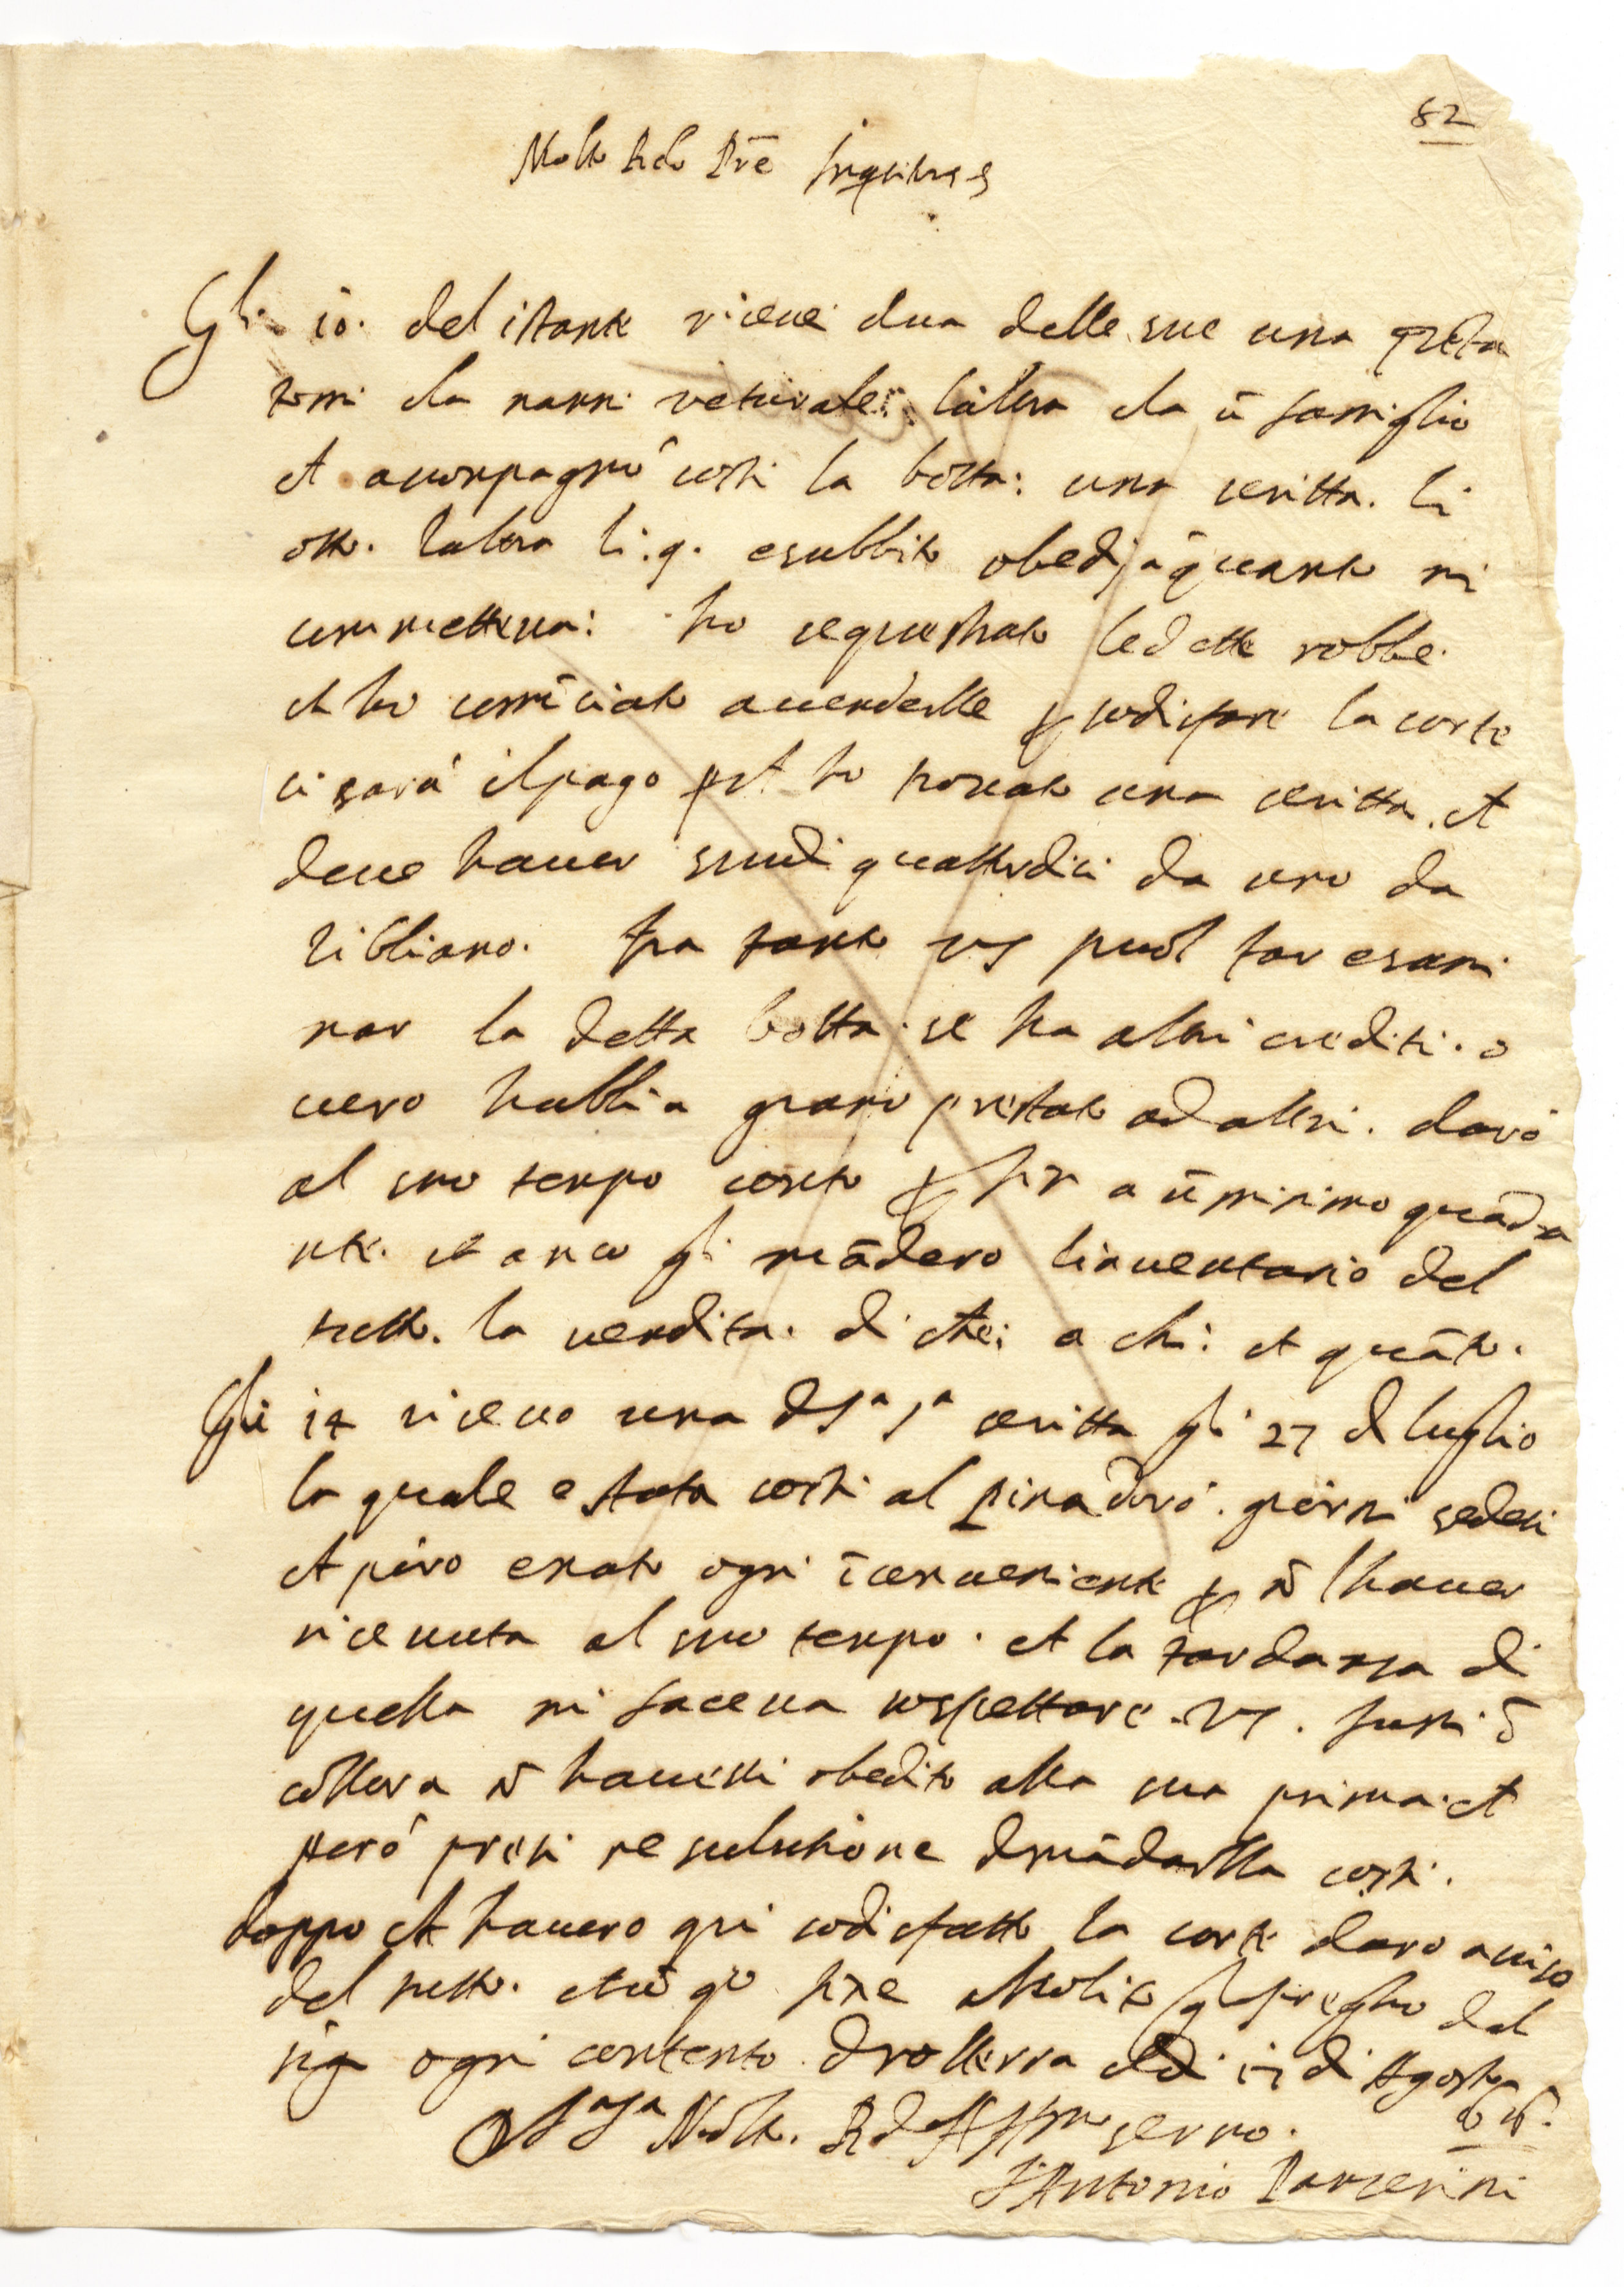 82
Molto Rdo Pre Inquisitore
Gli 10. del istante riceuei dua delle sue una
tomi da nanni veturale: laltra da ũ famiglio
et acompagnò costi la botta: una scritta. li
otto. laltra li .9. e subbito obedj à quanto mi
commetteua: ho sequestrato le dette robbe.
et ho comĩciato a uenderlle p sodisfare la corte
ci sarà il pago ho trouato una scritta. et
deue hauer scudi quattordici da uno da
libbiano. fra tanto VS puol far esami
nar la detta botta. se ha altri crediti. o
uero habbia grano prestato ad altri. darò
al suo tempo conto p fin a ũ minimo quãdra
nte. et anco gli mãdero linuentario del
tutto. la uendita. di che: a chi: et quãto.
Gli 14 riceuo una d Sa Sa scritta gli 27 d luglio
la quale e stata costi al giorni sedeci
et pero e nato ogni ĩconueniente p nõ lhauer
riceuuta al suo tempo. et la tardanza di
quella mi faceua sospettare. VS. fussi ĩ
collera nõ hauessi obedito alla sua prima. et
però presi resolutione d mãdarlla costi.
doppo et hauero qui sodisfatto la corte daro auiso
del tutto. fine al solito gli pregho dal
sigr ogni contento. d volterra adi 17 di Agosto
D Sa Sa Molto. Rda servo. 
f Antonio